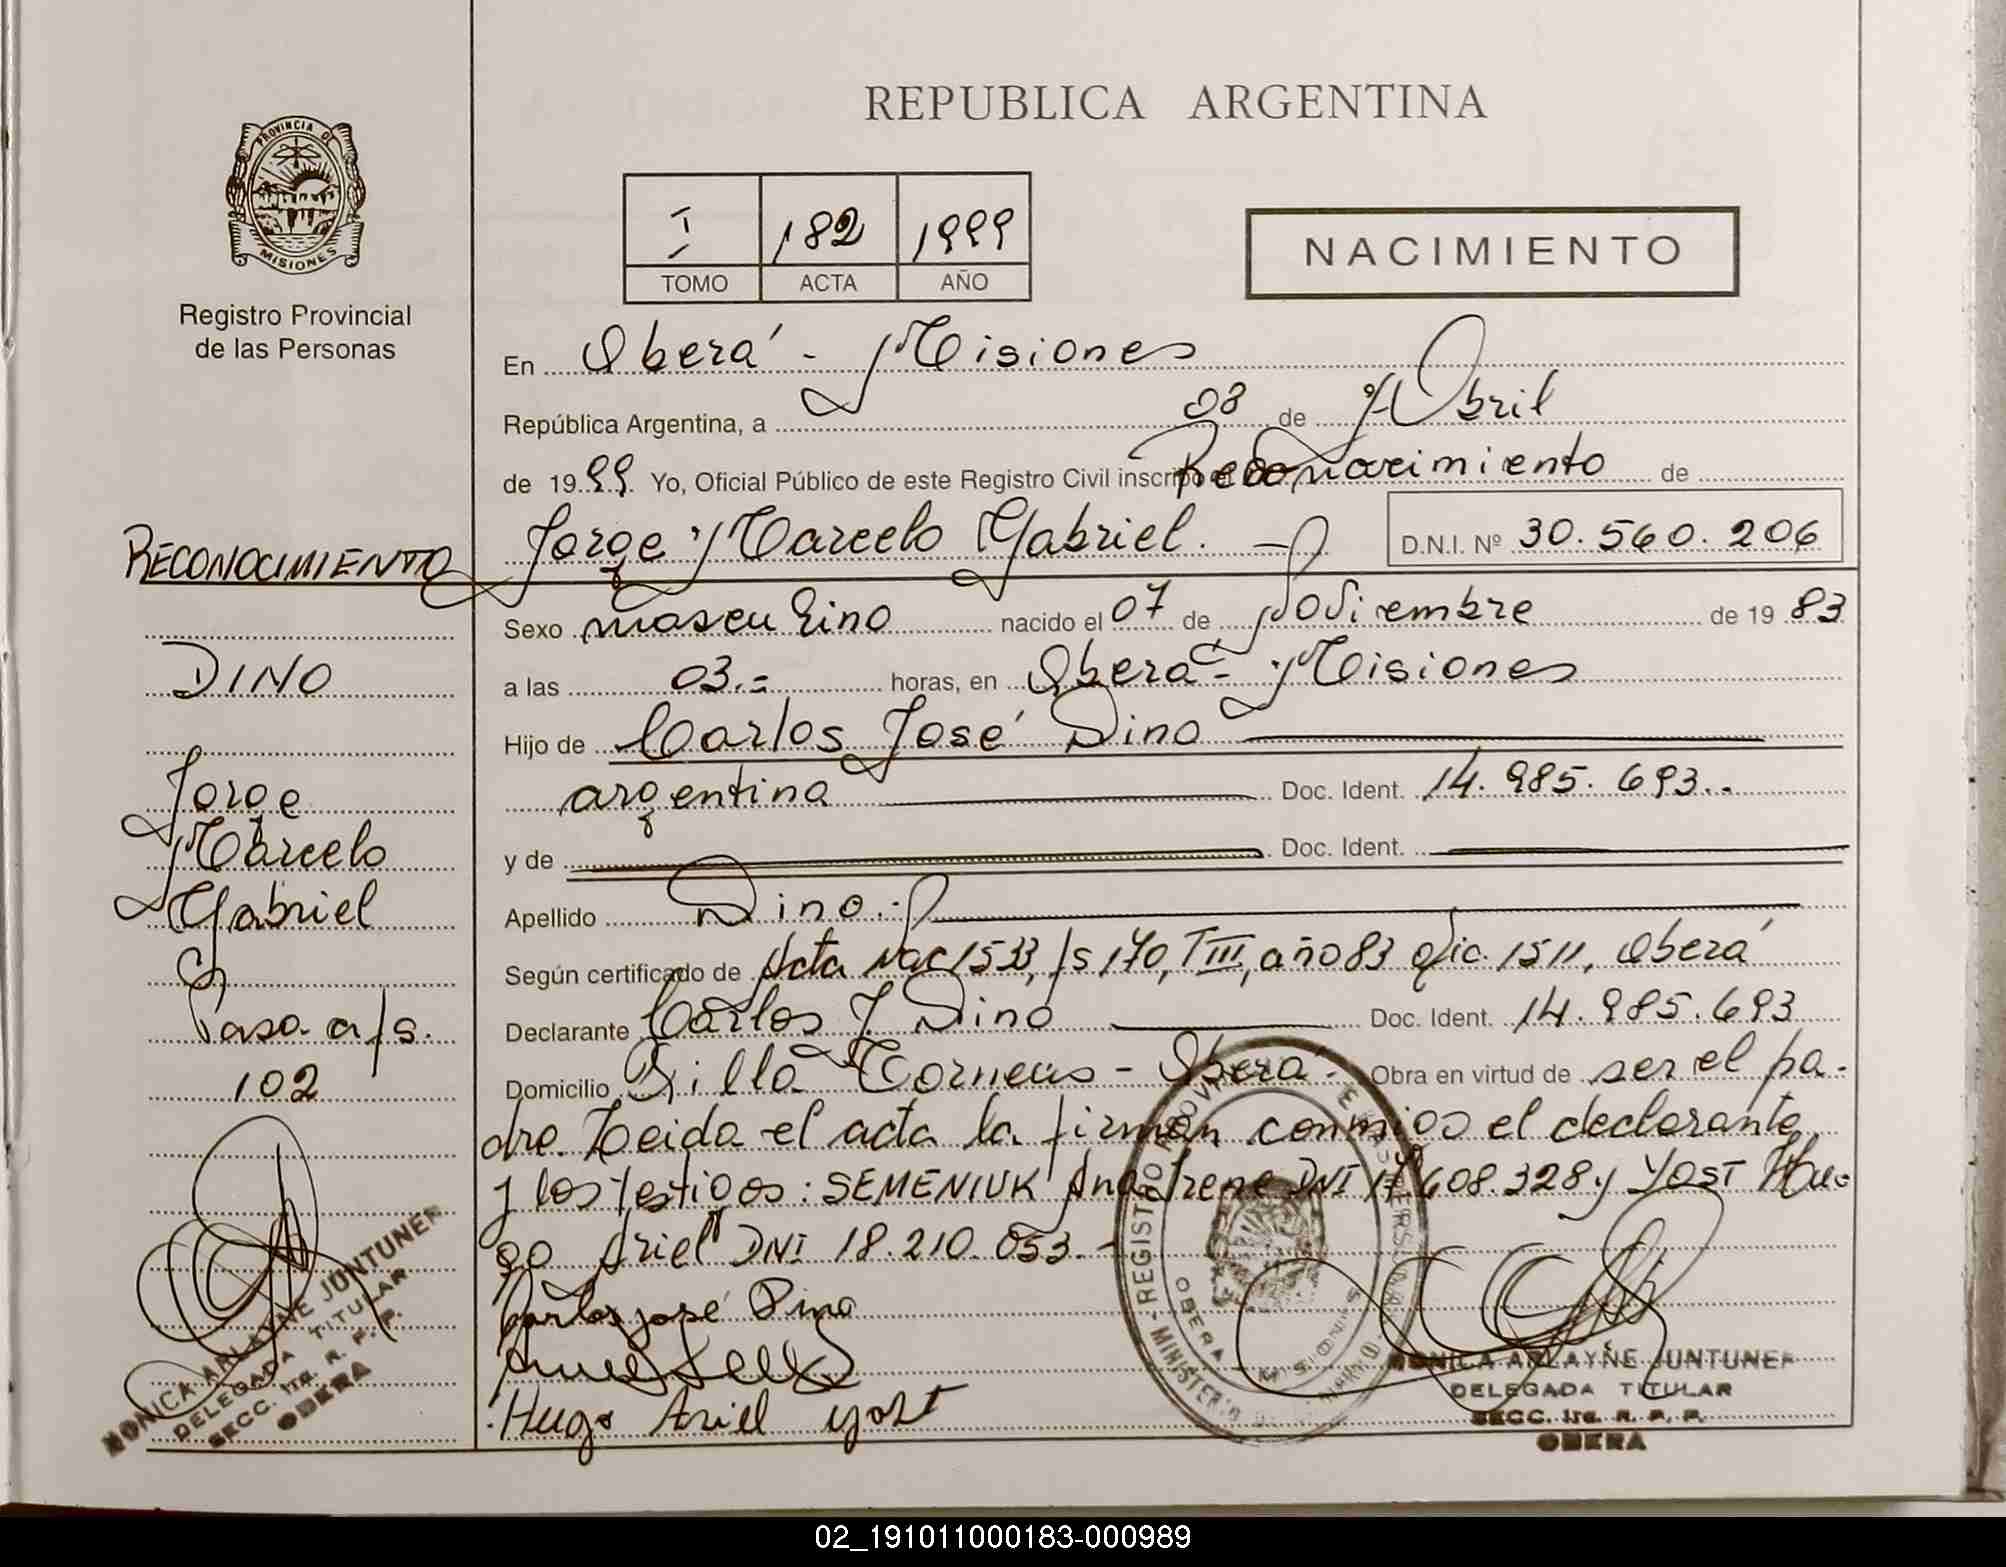 REPUBLICA ARGENTINA
PROVINCIA DE
MISIONES
Registro Provincial
de las Personas
I 182 1999
TOMO ACTA AÑO
NACIMIENTO
En Oberá - Misiones
República Argentina, a 08 de Abril
de 1999 Yo, Oficial Público de este Registro Civil inscribo el Reconocimiento de
Jorge Marcelo Gabriel. D.N.I. Nº 30.560.206
Sexo masculino nacido el 07 de Noviembre de 1983
a las 03.= horas, en Oberá - Misiones
Hijo de Carlos José Dino
argentina Doc. Ident. 14.985.693..
y de Doc. Ident.
Apellido Dino.-
Según certificado de Acta Nac 1533, fs 170, T III, año 83 Ofic. 1511, Oberá
Declarante Carlos J. Dino Doc. Ident. 14.985.693
Domicilio Villa Torneus - Oberá - Obra en virtud de ser el pa-
dre. Leida el acta la firman conmigo el declarante
y los testigos: SEMENIUK Ana Irene DNI 17.608.328 y YOST Hu-
go Ariel DNI 18.210.053.-
Carlos José Dino
Hugo Ariel yost
RECONOCIMIENTO
DINO
Jorge
Marcelo
Gabriel
Pasa a fs.
102
MONICA ARLAYNE JUNTUNEN
DELEGADA TITULAR
SECC. 1ra. R. P. P.
OBERA
REGISTRO PROVINCIAL
MINISTERIO
OBERA MISIONES
MONICA ARLAYNE JUNTUNEN
DELEGADA TITULAR
SECC. 1ra. R. P. P.
OBERA
02_191011000183-000989